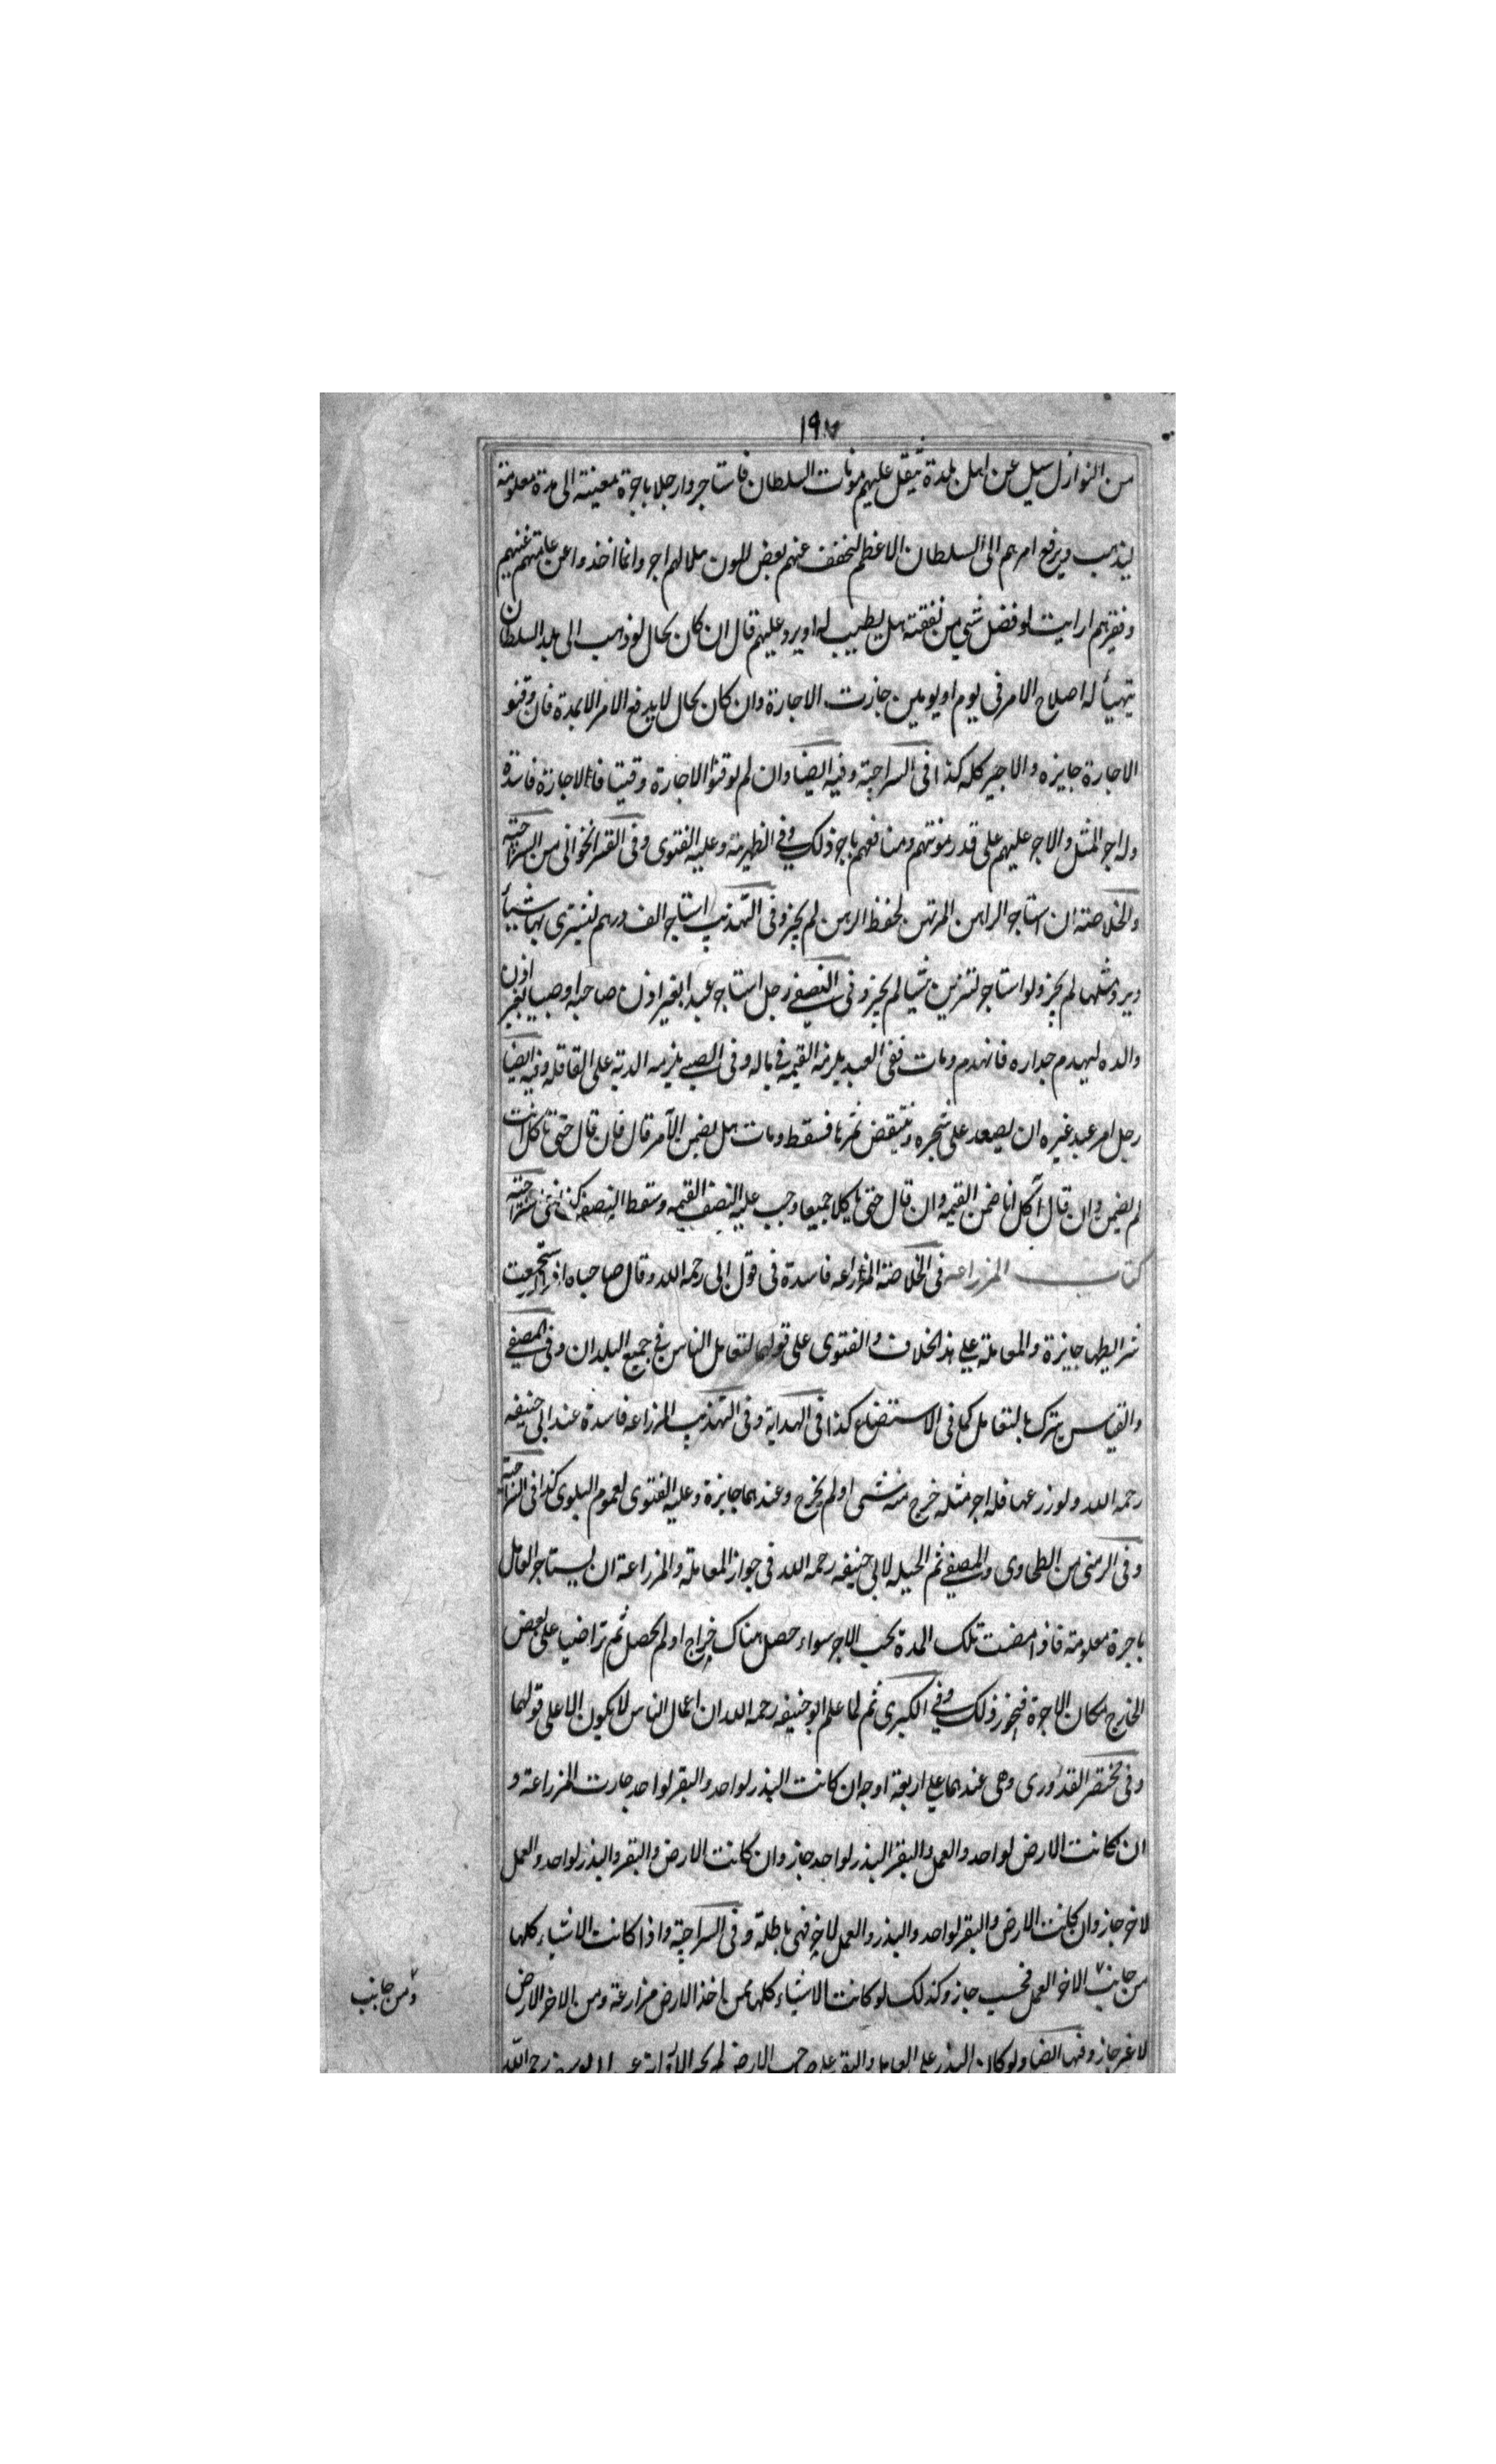 ١٩٧
من النوازل سيل عن اهل بلدة يثقل عليهم مونات السلطان فاستاجروا رجلا باجرة معينة الى مدة معلومة
ليذهب ويرفع امرهم الى السلطان الاعظم ليخفف عنهم بعض المون هل لهم اجر وانما اخذوا عن عامتهم غنيهم
وفقيرهم ارايت لو فضل شي من نفقته هل يطيب له او يرد عليهم قال ان كان بحال لو ذهب الى بلد السلطان
يتهيأ له اصلاح الامر فى يوم او يومين جازت الاجارة وان كان بحال لا يدفع الامر الا بمدة فان وقتو
الاجارة جايزه والاجير كله كذا فى السراجية وفيه ايضا وان لم يوقتوا الاجارة وقتيا فالاجارة فاسدة
وله اجر المثل والاجر عليهم على قدر مونتهم ومنافعهم باجر ذلك وفي الظهيرية وعليه الفتوى وفى من السراجية
والخلاصة ان استاجر الراهن المرتهن لحفظ الرهن لم يجز وفى التهذيب استاجر الف درهم ليشترى بها شيأ
ويرد مثلها لم يجز ولو استاجر لتزين شيا لم يجز وفى رجل استاجر عبدا بغير اذن صاحبه او صبيا بغير اذن
والده ليهدم جداره فانهدم ومات ففى العبد يلزمه القيمة فى ماله وفى الصبي يلزمه الدية على العاقله وفيه ايضا
رجل امر عبد غيره ان يصعد على شجره وينتقض ثمرها فسقط ومات هل يضمن الآمر قال فان قال حتى تاكل انت
لم يضمن وان قال آكل انا ضمن القيمه وان قال حتى ناكلا جميعا وجب عليه النصف القيمه وسقط النصف كذا فى السراجية
كتاب المزراعه فى الخلاصة المزراعه فاسدة فى قول ابى رحمه الله وقال صاحباه اذا استجمعت
شرايطها جايزة والمعاملة على هذ الخلاف والفتوى على قولهما لتعامل الناس في جميع البلدان وفى المصفى
والقياس يترك بالتعامل كما فى الاستصناع كذا فى الهداية وفى التهذيب المزراعه فاسدة عند ابى حنيفه
رحمه الله ولو زرعها فله اجر مثله خرج منه شى او لم يخرج وعندهما جايزة وعليه الفتوى لعموم البلوى كذا فى السراجية
وفى من الطحاوى والمصفى ثم الحيله لابى حنيفه رحمه الله فى جواز المعاملة والمزراعة ان يستاجر العامل
باجرة معلومة فاذا مضت تلك المدة يجب الاجر سواء حصل هناك خراج او لم يحصل ثم تراضيا على بعض
الخارج مكان الاجرة فيجوز ذلك وفي الكبرى ثم لما علم ابو حنيفه رحمه الله ان اعمال الناس لا يكون الا على قولهما
وفى مختصر القدورى وهى عندهما على اربعة اوجه ان كانت البذر لواحد والبقر لواحد جازت المزراعة و
ان كانت الارض لواحد والعمل والبقر البذر لواحد جاز وان كانت الارض والبقر والبذر لواحد والعمل
لاخر جاز وان كانت الارض والبقر لواحد والبذر والعمل لاخر فهى باطلة وفى السراجية واذا كانت الاشياء كلها
من جانب الاخر العمل فحسب جاز وكذلك لو كانت الاشياء كلها ممن اخذ الارض مزارعة ومن الاخر الارض
ومن جانب
لا غير جاز وفيها ايضا ولو كان البذر على العامل والبقر على صاحب الارض لم يجز الا رواية عن ابى يوسف رحمه الله